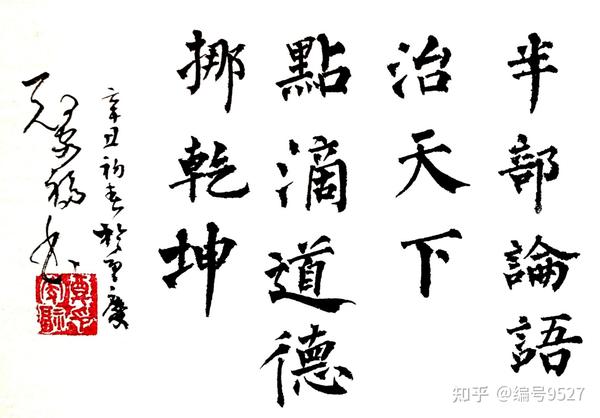 半部論語
治天下
點滴道德
挪乾坤
辛丑初春於重慶
知乎 @编号9527